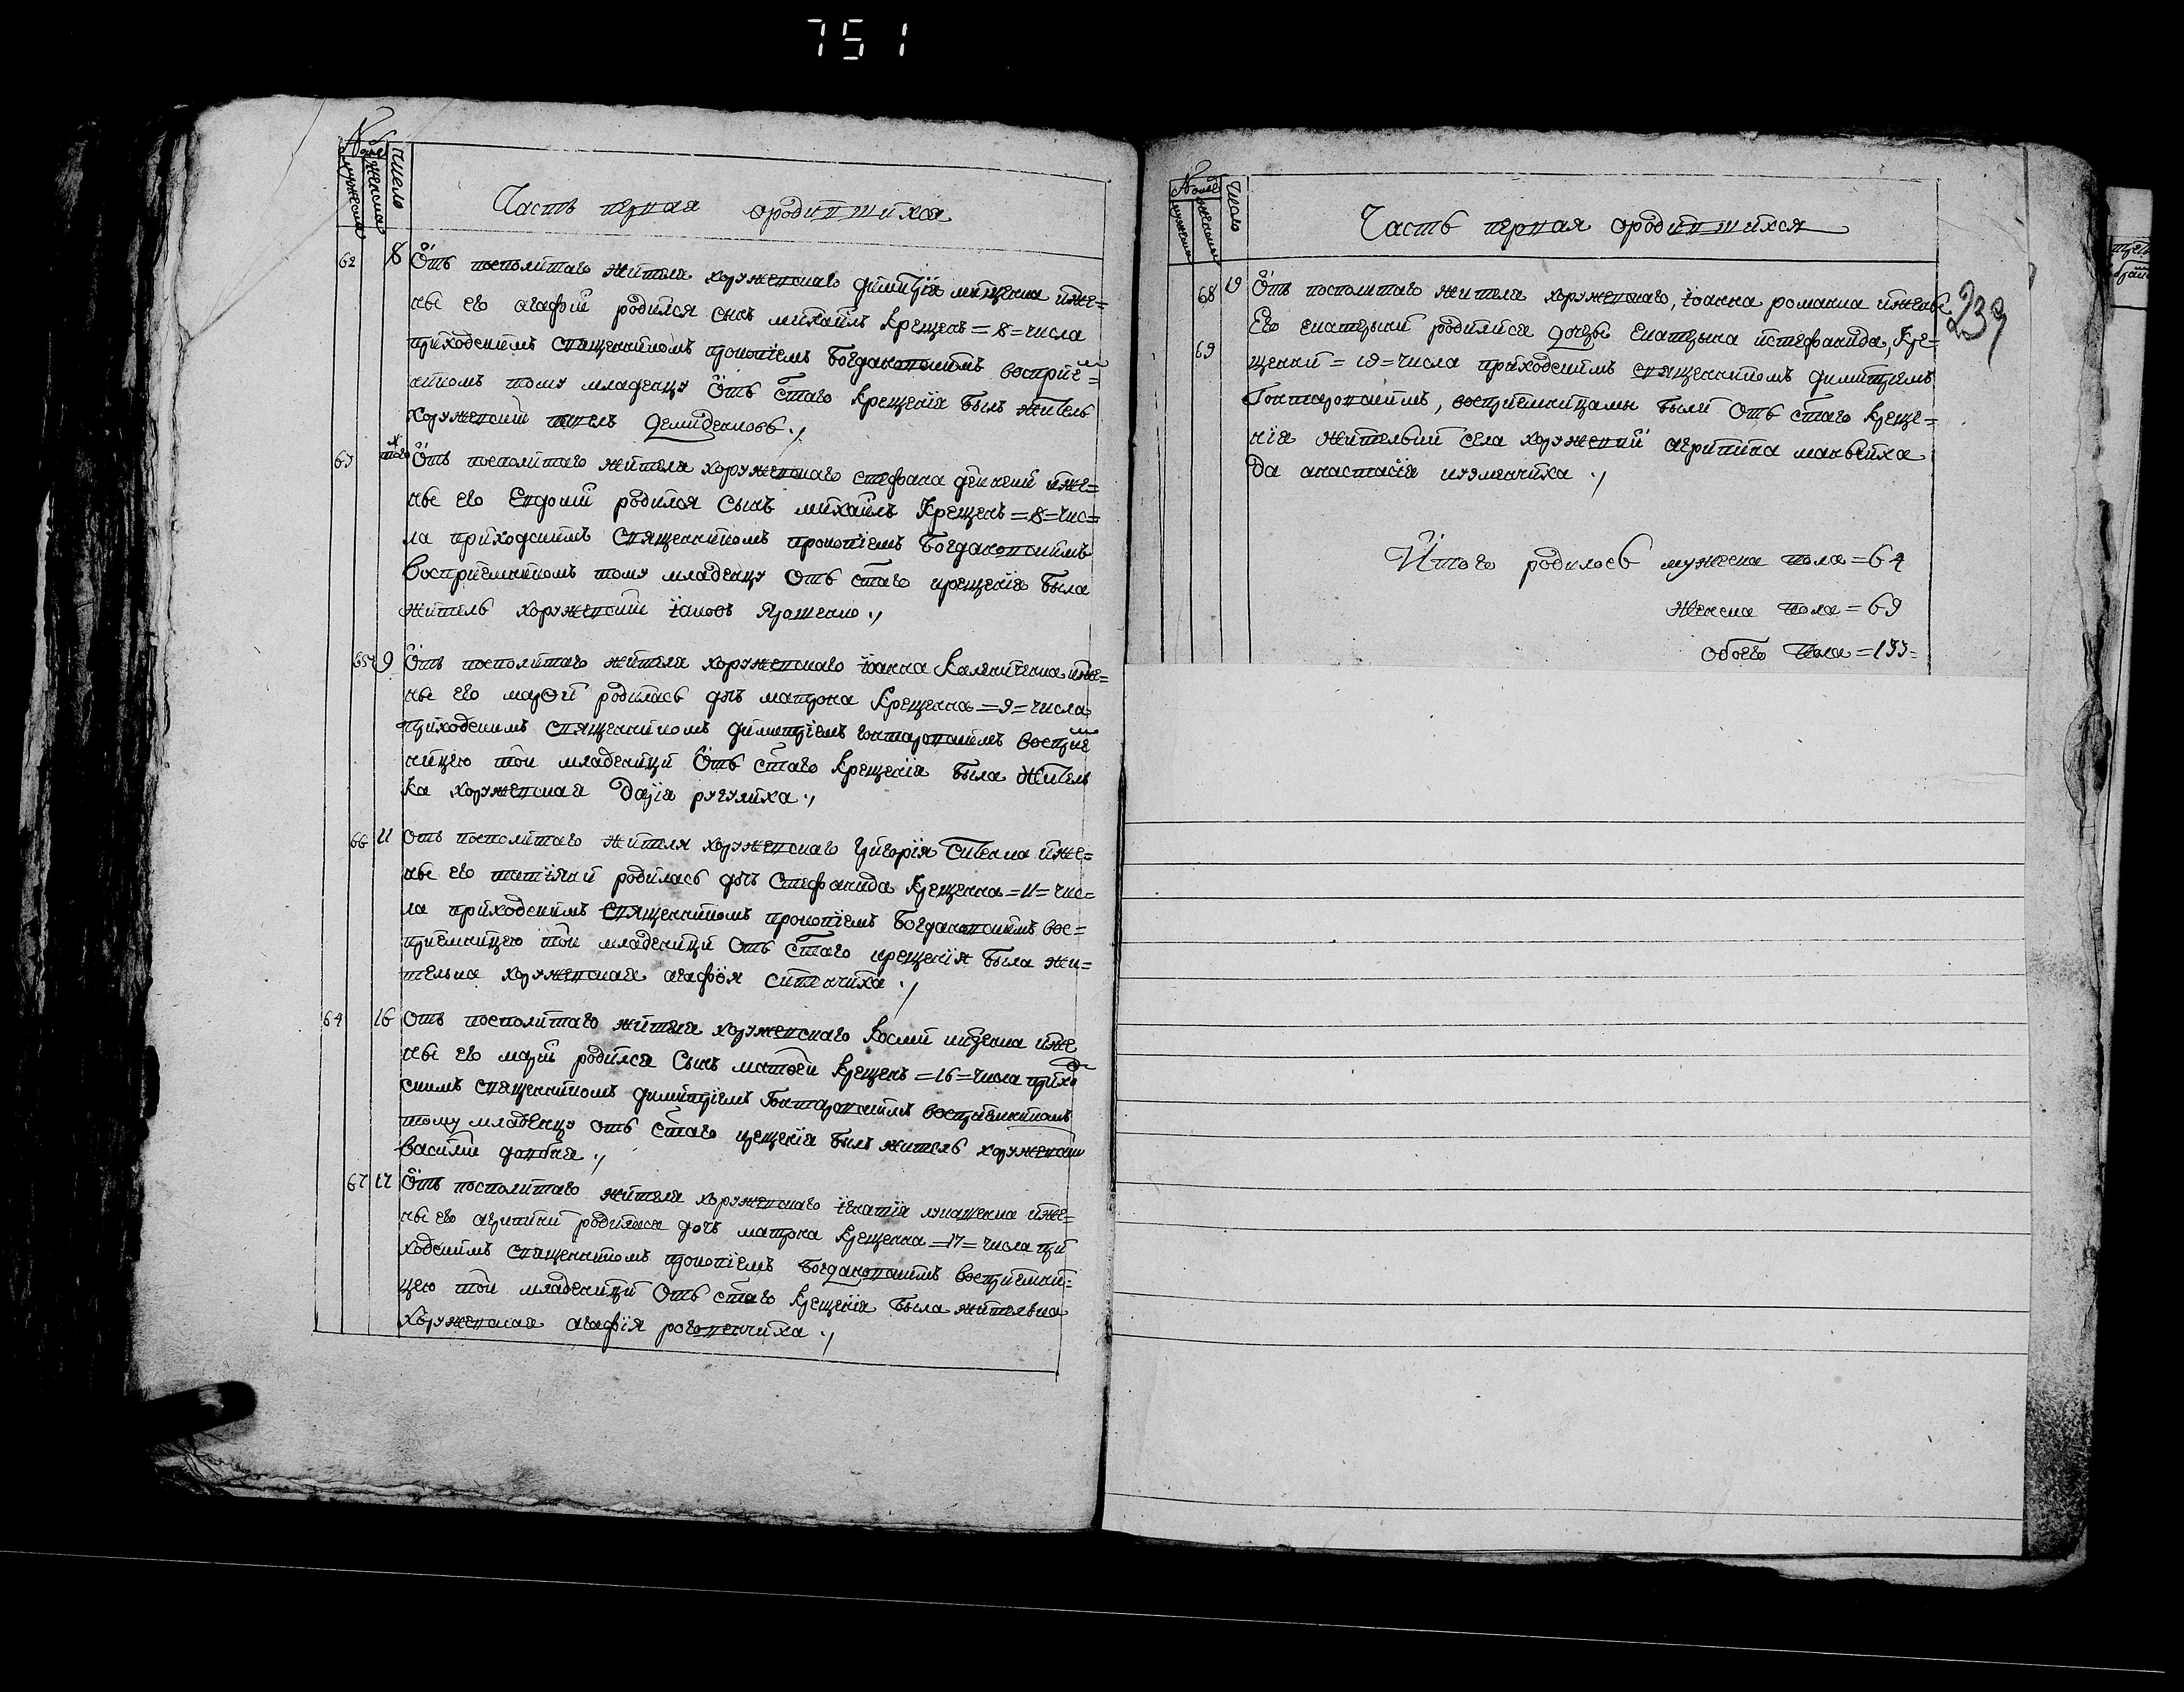 751
№
мужеска
женска
число
Часть первая ородившихся
62 8 Отъ посполитаго жителя хоружевскаго димитрія мищенка ижe=
ны его агафiи родился сынъ михаилъ крещенъ = 8 = числа
приходскимъ священникомъ прокопіемъ Богдановскимъ восприем=
никомъ тому младенцу Отъ стаго крещенія былъ житель
хоружевскій павелъ Демиденковъ ./
63 того Отъ посполитаго жителя хоружевскаго стефана ижe=
ны его Евдокіи родился Сынъ михаилъ Крещенъ = 8 = чис=
ла приходскимъ Священникомъ прокопіемъ Богдановскимъ
Восприемникомъ тому младенцу Отъ стаго крещенія была
житель хоружевскій іаковъ Ярошенко ./
65 9 Отъ посполитаго жителя хоружевскаго іоанна Калениченка ижe=
ны его марѳи родилась дчъ матрона Крещенна = 9 = числа
приходскимъ Священникомъ димитріемъ гонтаровскимъ восприем
ницею той младеници Отъ Стаго Крещенія была житель
ка хоружевская Дарія ругулиха ./
66 11 Отъ посполитаго жителя хоружевскаго григорія Ситенка ижe=
ны его татіяни родилась дчъ Стефанида Крещенна = 11 = чис=
ла приходскимъ Священникомъ прокопіемъ Богдановскимъ вос=
приемницею той младеници Отъ Стаго крещенія была жи=
телька хоружевская агафія ситенчиха ./
64 16 Отъ посполитаго жителя хоружевскаго Косми ижe
ны его маріи родился Сынъ матѳей Крещенъ = 16 = числа приход
скимъ священникомъ димитріемъ Гонтаровскимъ восприемникомъ
тому младенцу отъ Стаго крещенія былъ житель хоружевскій
Василій довбня ./
67 17 Отъ посполитаго жителя хоружевскаго ігнатія лукашенка ижe=
ны его агрипини родилася дочъ матрона Крещенна = 17 = числа при
ходскимъ священникомъ прокопіемъ Богдановскимъ восприемни=
цею той младеници Отъ стаго Крещенія была жителька
Хоружевская агафія роговенчиха ./
№
мужеска
женска
число
Часть первая ородившихся
239
68 19 Отъ посполитаго жителя хоружевскаго, іоанна романка иженѣ
Его екатерини родилися дочеры Екатерина истефанида, Кре=
69 щенни = 19 = числа приходскимъ священникомъ димитріемъ
Гонтаровскимъ, восприемницами были Отъ стаго креще=
нія жительки села хоружевки агрипина манькиха
да анастасія
Итого родилось мужеска пола = 64
женска пола = 69
обоего пола = 133 =